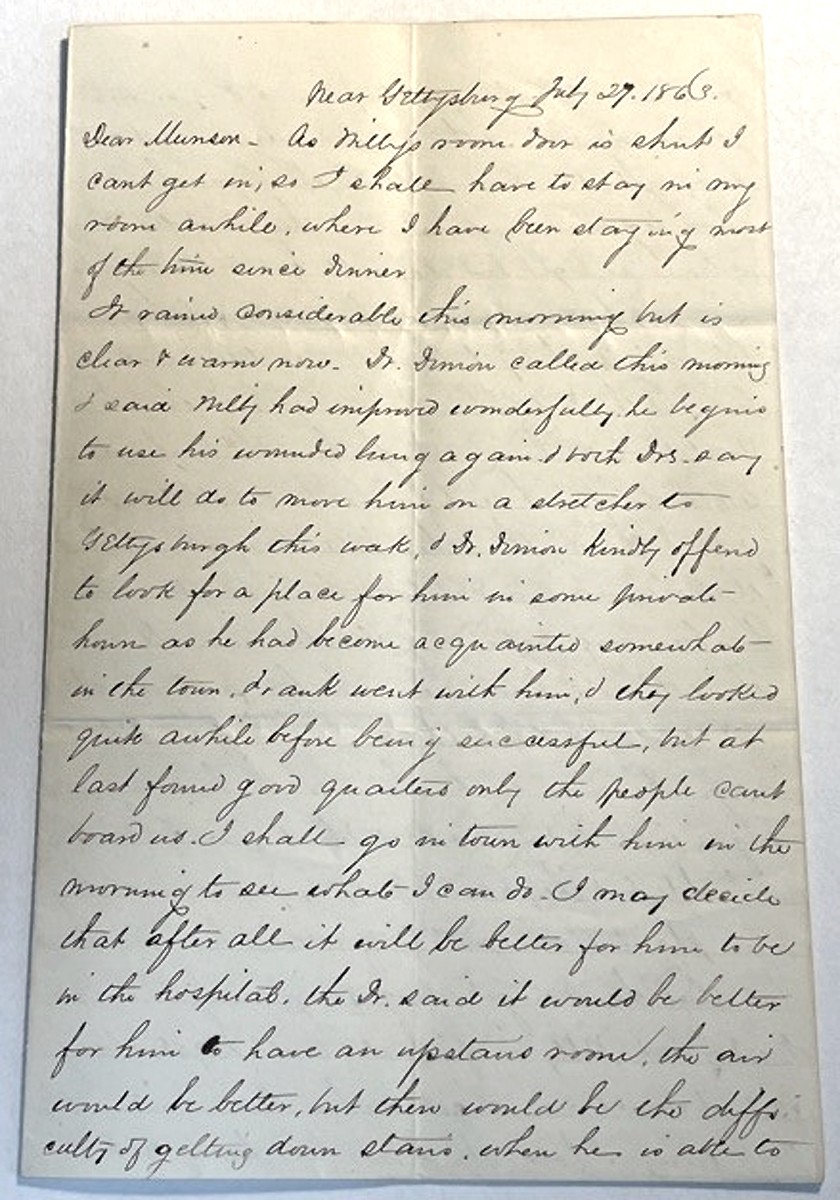 Near Gettysburg July 27. 1863.
Dear Munson - As Milty's room door is shut I
cant get in, so I shall have to stay in my
room awhile, where I have been staying most
of the time since dinner
It rained considerable this morning but is
clear & warm now. Dr. Dimon called this morning
& said Milty had improved wonderfully. he begins
to use his wounded lung again. & both Drs. say
it will do to move him on a stretcher to
Gettysburgh this week, & Dr. Dimon kindly offered
to look for a place for him in some private
house as he had become acquainted somewhat
in the town, Frank went with him, & they looked
quite awhile before being successful, but at
last found good quarters only the people cant
board us. I shall go in town with him in the
morning to see what I can do. I may decide
that after all it will be better for him to be
in the hospital. the Dr. said it would be better
for him to have an upstairs room, the air
would be better, but then would be the diffi
culty of getting down stairs. when he is able to